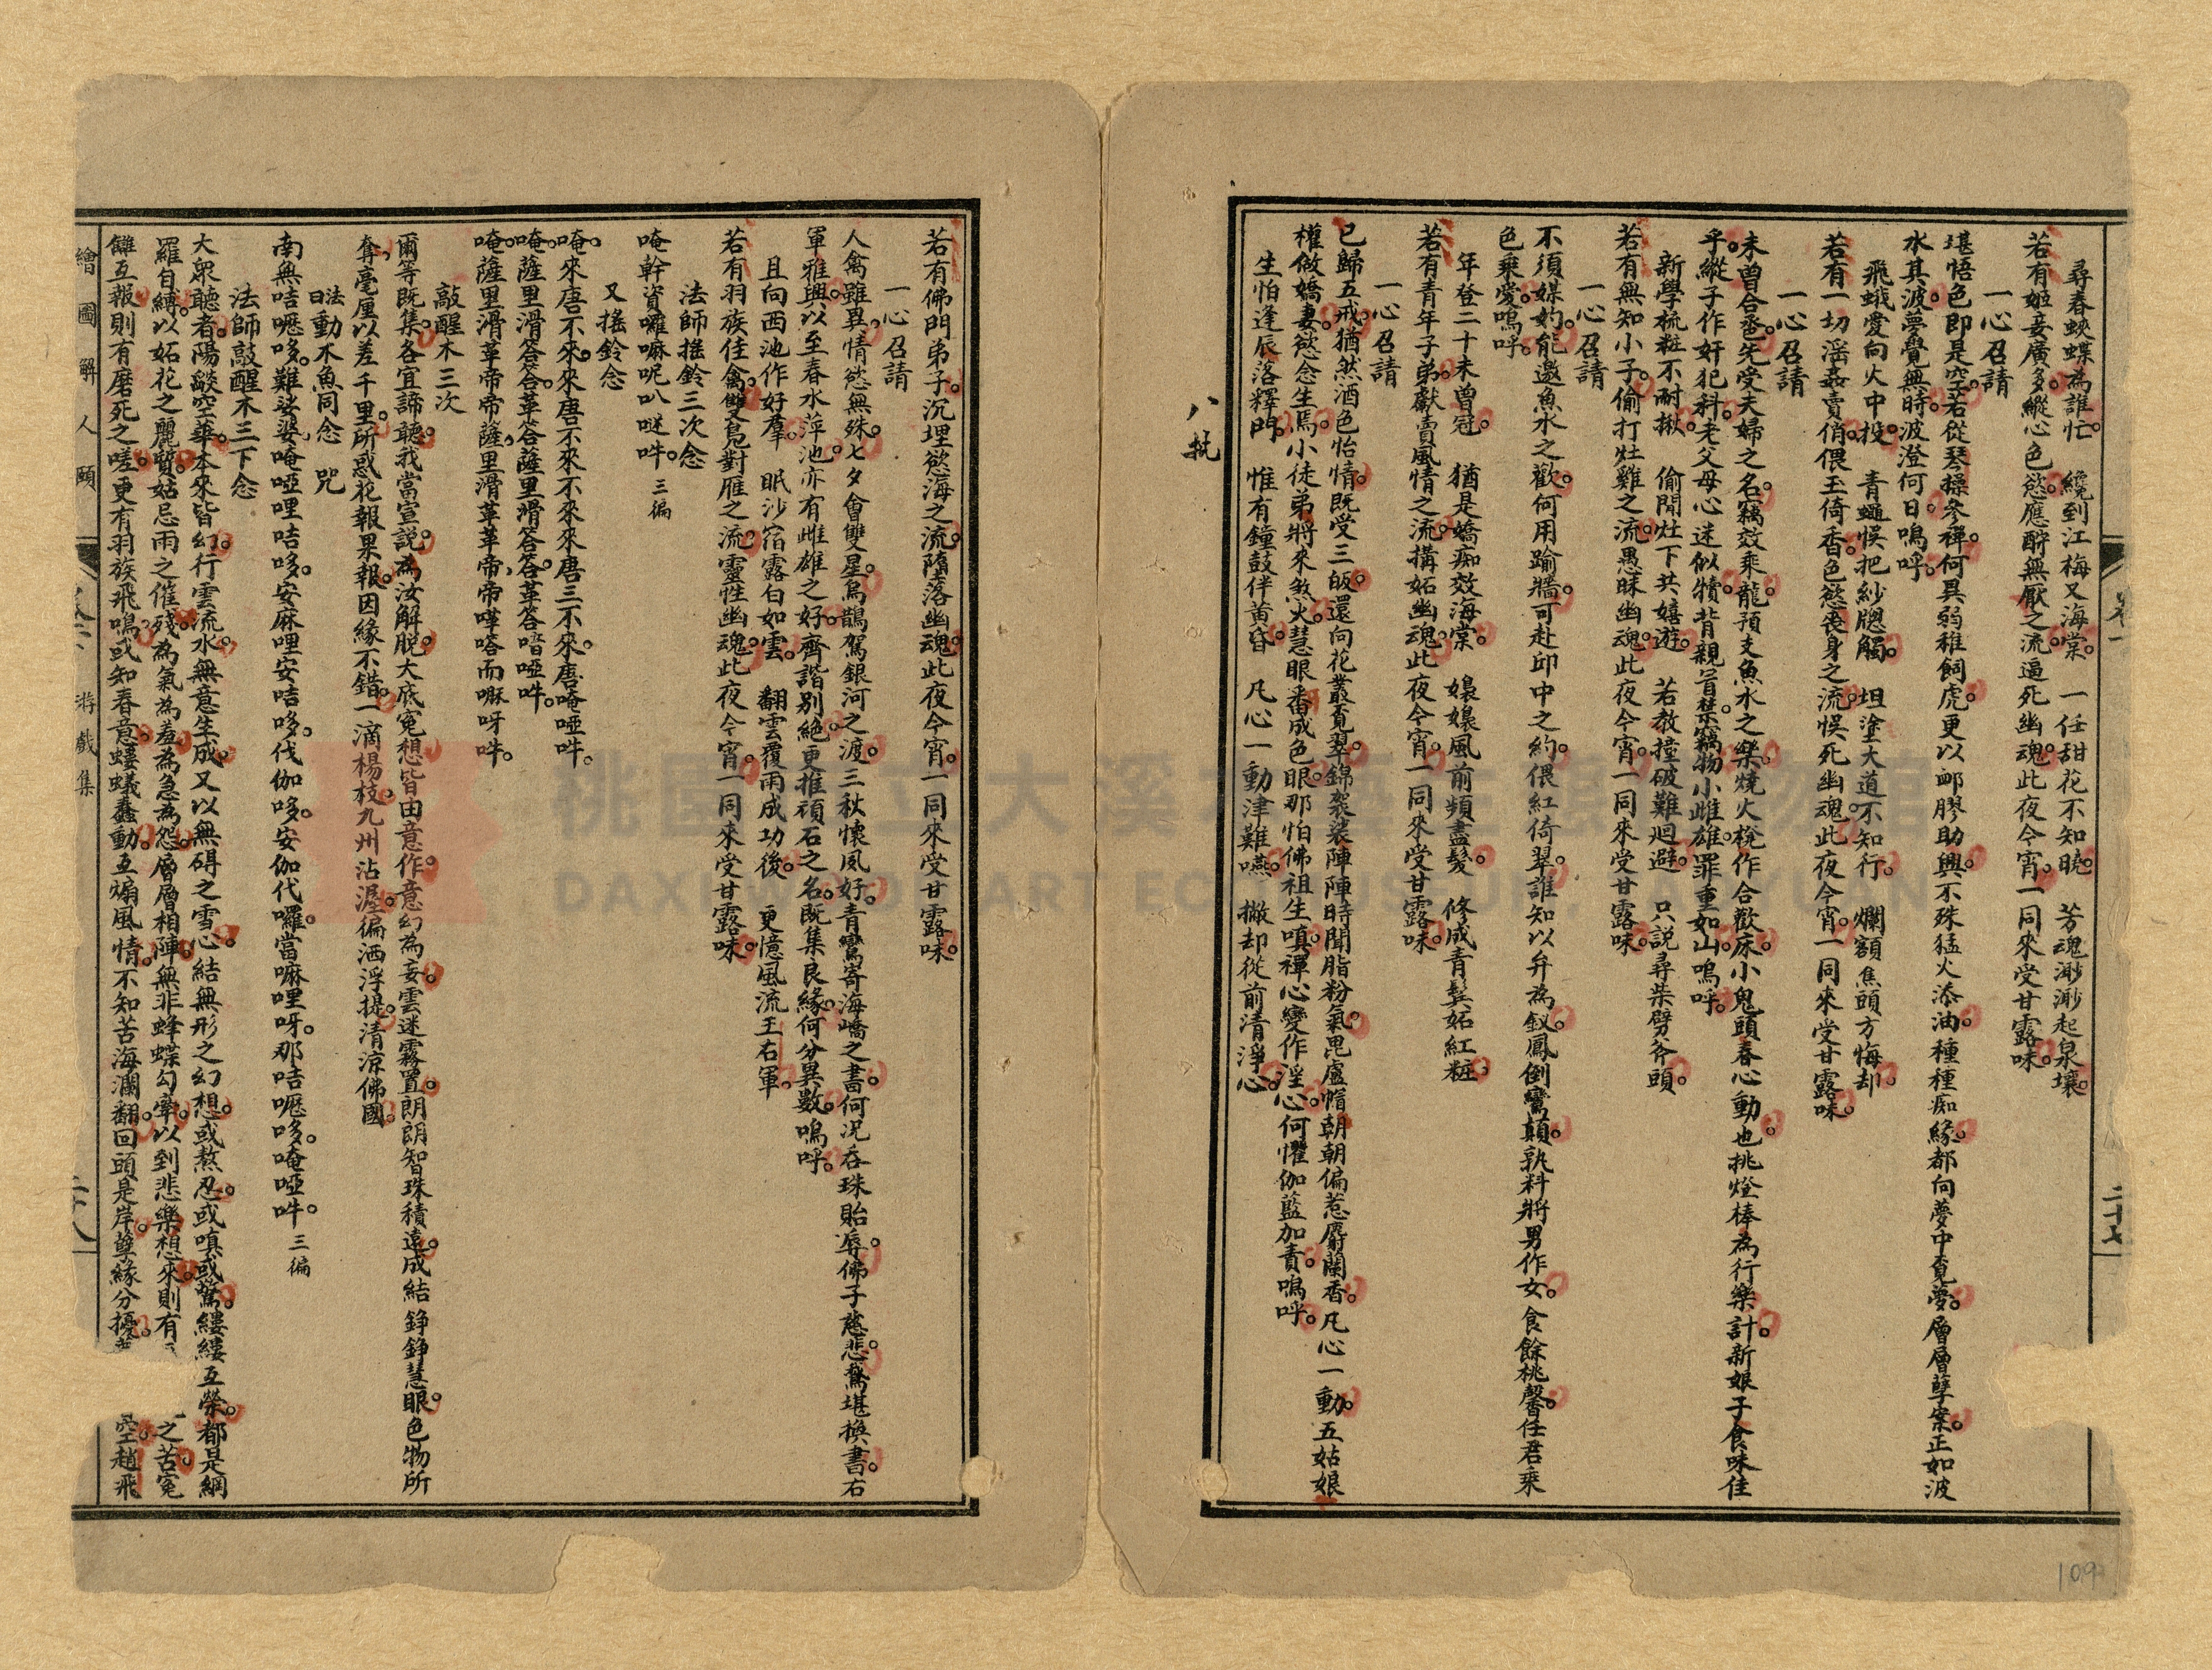 尋春蛺蝶為誰忙。　纔到江梅又海棠。　一任甜花不知曉。　芳魂渺渺起泉壤。
若有姬妾廣多。縱心色慾。應酧無厭之流。逼死幽魂。此夜今宵。一同來受甘露味。
一心召請
堪悟色即是空。若從琴操參禪。何異弱稚飼虎。更以卹膠助興。不殊猛火添油。種種痴緣。都向夢中覓夢。層層孽案。正如波
水其波。夢覺無時。波澄何日。嗚呼。
飛蛾愛向火中投。　青蠅悞把紗牕觸。　坦塗大道不知行。　爛額焦頭方悔却
若有一切淫姦賣俏。偎玉倚香。色慾喪身之流。悞死幽魂。此夜今宵。一同來受甘露味。
一心召請
未曾合巹。先受夫婦之名。竊效乘龍。預支魚水之樂。燒火棁作合歡床。小鬼頭春心動也。挑燈棒為行樂計。新娘子食味佳
乎。縱子作奸犯科。老父母心迷似犢。背親冒禁竊物。小雌雄罪重如山。嗚呼。
新學梳粧不耐揪。　偷閒灶下共嬉遊。　若教撞破難迴避。　只說尋柴劈斧頭。
若有無知小子。偷打灶雞之流。愚昧幽魂。此夜今宵。一同來受甘露味。
一心召請
不須媒妁。能邀魚水之歡。何用踰牆。可赴邱中之約。偎紅倚翠。誰知以弁為釵。鳳倒鸞顛。孰料將男作女。食餘桃馨。任君乘
色乘愛。嗚呼。
年登二十未曾冠。　猶是嬌痴效海棠　嬝嬝風前頻盡髮。　修成青鬂妬紅粧。
若有青年子弟。獻賣風情之流。搆妬幽魂。此夜今宵。一同來受甘露味。
一心召請
已歸五戒。猶然酒色怡情。既受三皈。還向花叢覓翠。錦袈裟陣陣時聞脂粉氣。毘盧帽朝朝偏惹麝蘭香。凡心一動。五姑娘
權做嬌妻。慾念生焉。小徒弟將來煞火。慧眼番成色眼。那怕佛祖生嗔。禪心變作淫心。何懼伽藍加責。嗚呼。
生怕逢辰落釋門。　惟有鐘鼓伴黃昏。　凡心一動津難嚥。　撇却從前清淨心。
八批
若有佛門弟子。沉埋慾海之流。墮落幽魂。此夜今宵。一同來受甘露味。
一心召請
人禽雖異。情慾無殊。七夕會雙星。烏鵲駕銀河之渡。三秋懷夙好。青鸞寄海嶠之書。何況吞珠貽辱。佛子慈悲。鶩堪換書。右
軍雅興。以至春水萍池。亦有雌雄之好。齊諧別絕。更推頑石之名。既集良緣。何分異數。嗚呼。
且向西池作好羣。　眠沙宿露白如雲。　翻雲覆雨成功後。　更憶風流王右軍。
若有羽族佳禽。雙鳧對雁之流。靈性幽魂。此夜今宵。一同來受甘露味。
法師搖鈴三次念
唵幹資囉嘛呢叭噠吽。三徧
又搖鈴念
唵。來唐不來。來唐不來不來來唐三不來。唐唵啞吽。
唵。薩里滑答答。革答薩里滑答。答革答喑啞吽。
唵。薩里滑革帝帝薩。里滑革革帝。帝嘩嗒而嘛呀吽。
敲醒木三次
爾等既集。各宜諦聽。我當宣說。為汝解脫。大底寃想。皆由意作。意幻為妄。雲迷霧罩。朗朗智珠。積遠成結。錚錚慧眼。色物所
奪。毫厘以差千里。所惑花報果報。因緣不錯。一滴楊枝。九州沾渥。偏洒浮提。清涼佛國。
法動木魚同念　咒曰
南無咭嚦哆。難娑婆。唵啞哩咭哆。安麻哩安咭哆。伐伽哆。安伽代囉。當嘛哩呀。那咭嚦哆。唵啞吽。三徧
法師敲醒木三下念
大衆聽者。陽燄空華。本來皆幻。行雲流水。無意生成。又以無碍之雪心。結無形之幻想。或熬忍。或嗔或驚。縷縷互縈。都是網
羅自縛。以妬花之麗質。姑忌雨之催殘。為氣為羞。為急為怨。層層相陣。無非蜂蝶勾牽。以到悲樂想來。則有 之苦。寃
讎互報。則有磨死之嗟。更有羽族飛鳴。或知春意。螻蟻蠢動。互煽風情。不知苦海瀾翻。回頭是岸。孽緣分擾。 空趙飛
卷一
二十七
繪圖解人頤
卷一　游戲集
二十八
桃園市立大溪木藝生態博物館
DAXI WOOD ART ECOMUSEUM, TAOYUAN
109